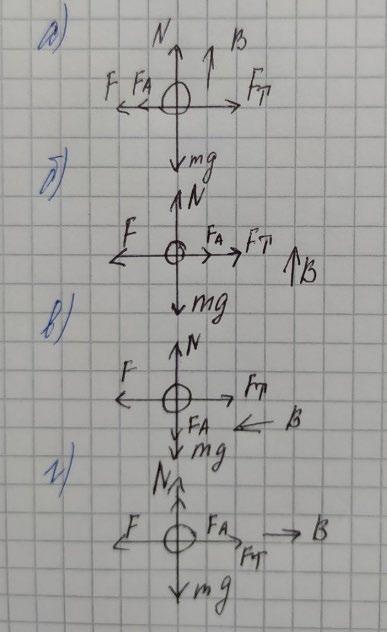 а)
N B
F FA FT
mg
б)
N
F FA FT
B
mg
в)
N
F FT
FA B
mg
г)
N
F FA B
FT
mg